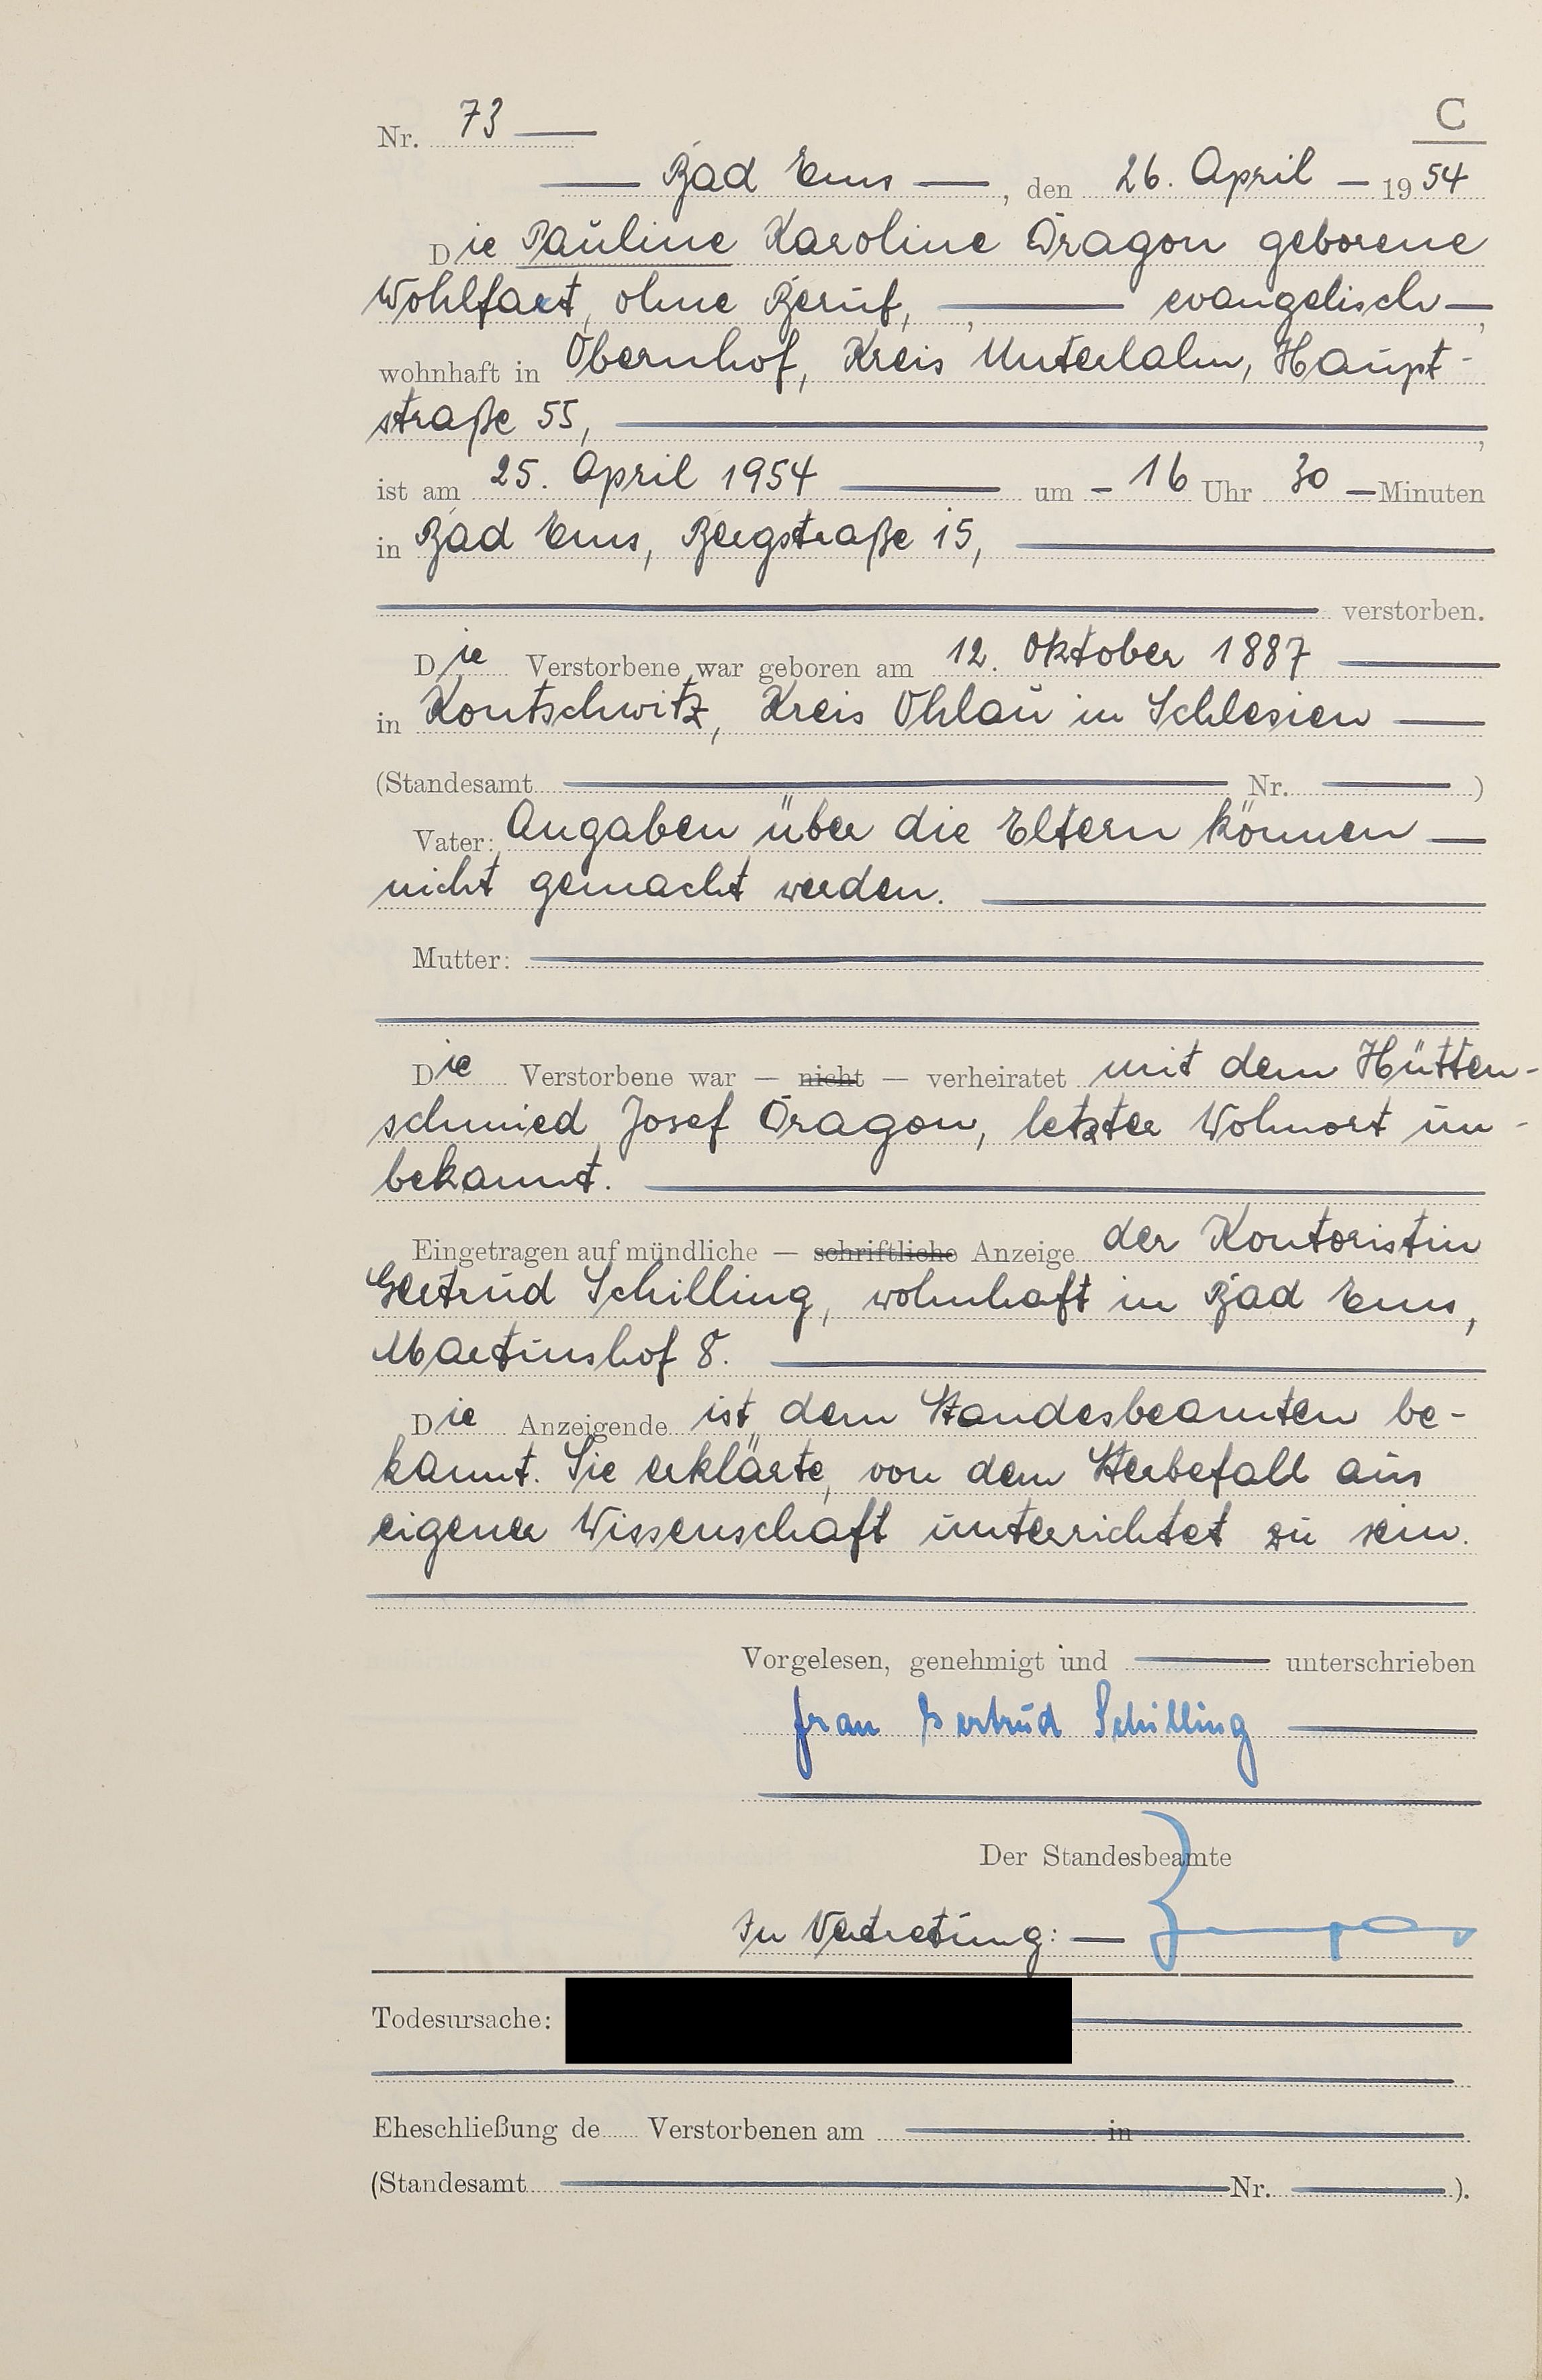 C
Nr. 73
Bad Ems, den 26. April 1954
Die Pauline Karoline Dragon geborene
Wohlfart, ohne Beruf, , evangelisch ,
wohnhaft in Obernhof, Kreis Unterlahn, Haupt-
straße 55, ,
ist am 25. April 1954 um 16 Uhr 30 Minuten
in Bad Ems, Bergstraße 15,
verstorben.
Die Verstorbene war geboren am 12. Oktober 1887
in Kontschwitz, Kreis Ohlau in Schlesien
(Standesamt Nr. )
Vater: Angaben über die Eltern können
nicht gemacht werden.
Mutter:
Die Verstorbene war — nicht — verheiratet mit dem Hütten-
schmied Josef Dragon, letzter Wohnort un-
bekannt.
Eingetragen auf mündliche — schriftliche Anzeige der Kontoristin
Gertrud Schilling, wohnhaft in Bad Ems,
Martinshof 8.
Die Anzeigende ist dem Standesbeamten be-
kannt. Sie erklärte, von dem Sterbefall aus
eigener Wissenschaft unterrichtet zu sein.
Vorgelesen, genehmigt und unterschrieben
Frau Gertrud Schilling
Der Standesbeamte
In Vertretung:
Todesursache:
Eheschließung de Verstorbenen am in
(Standesamt Nr. ).